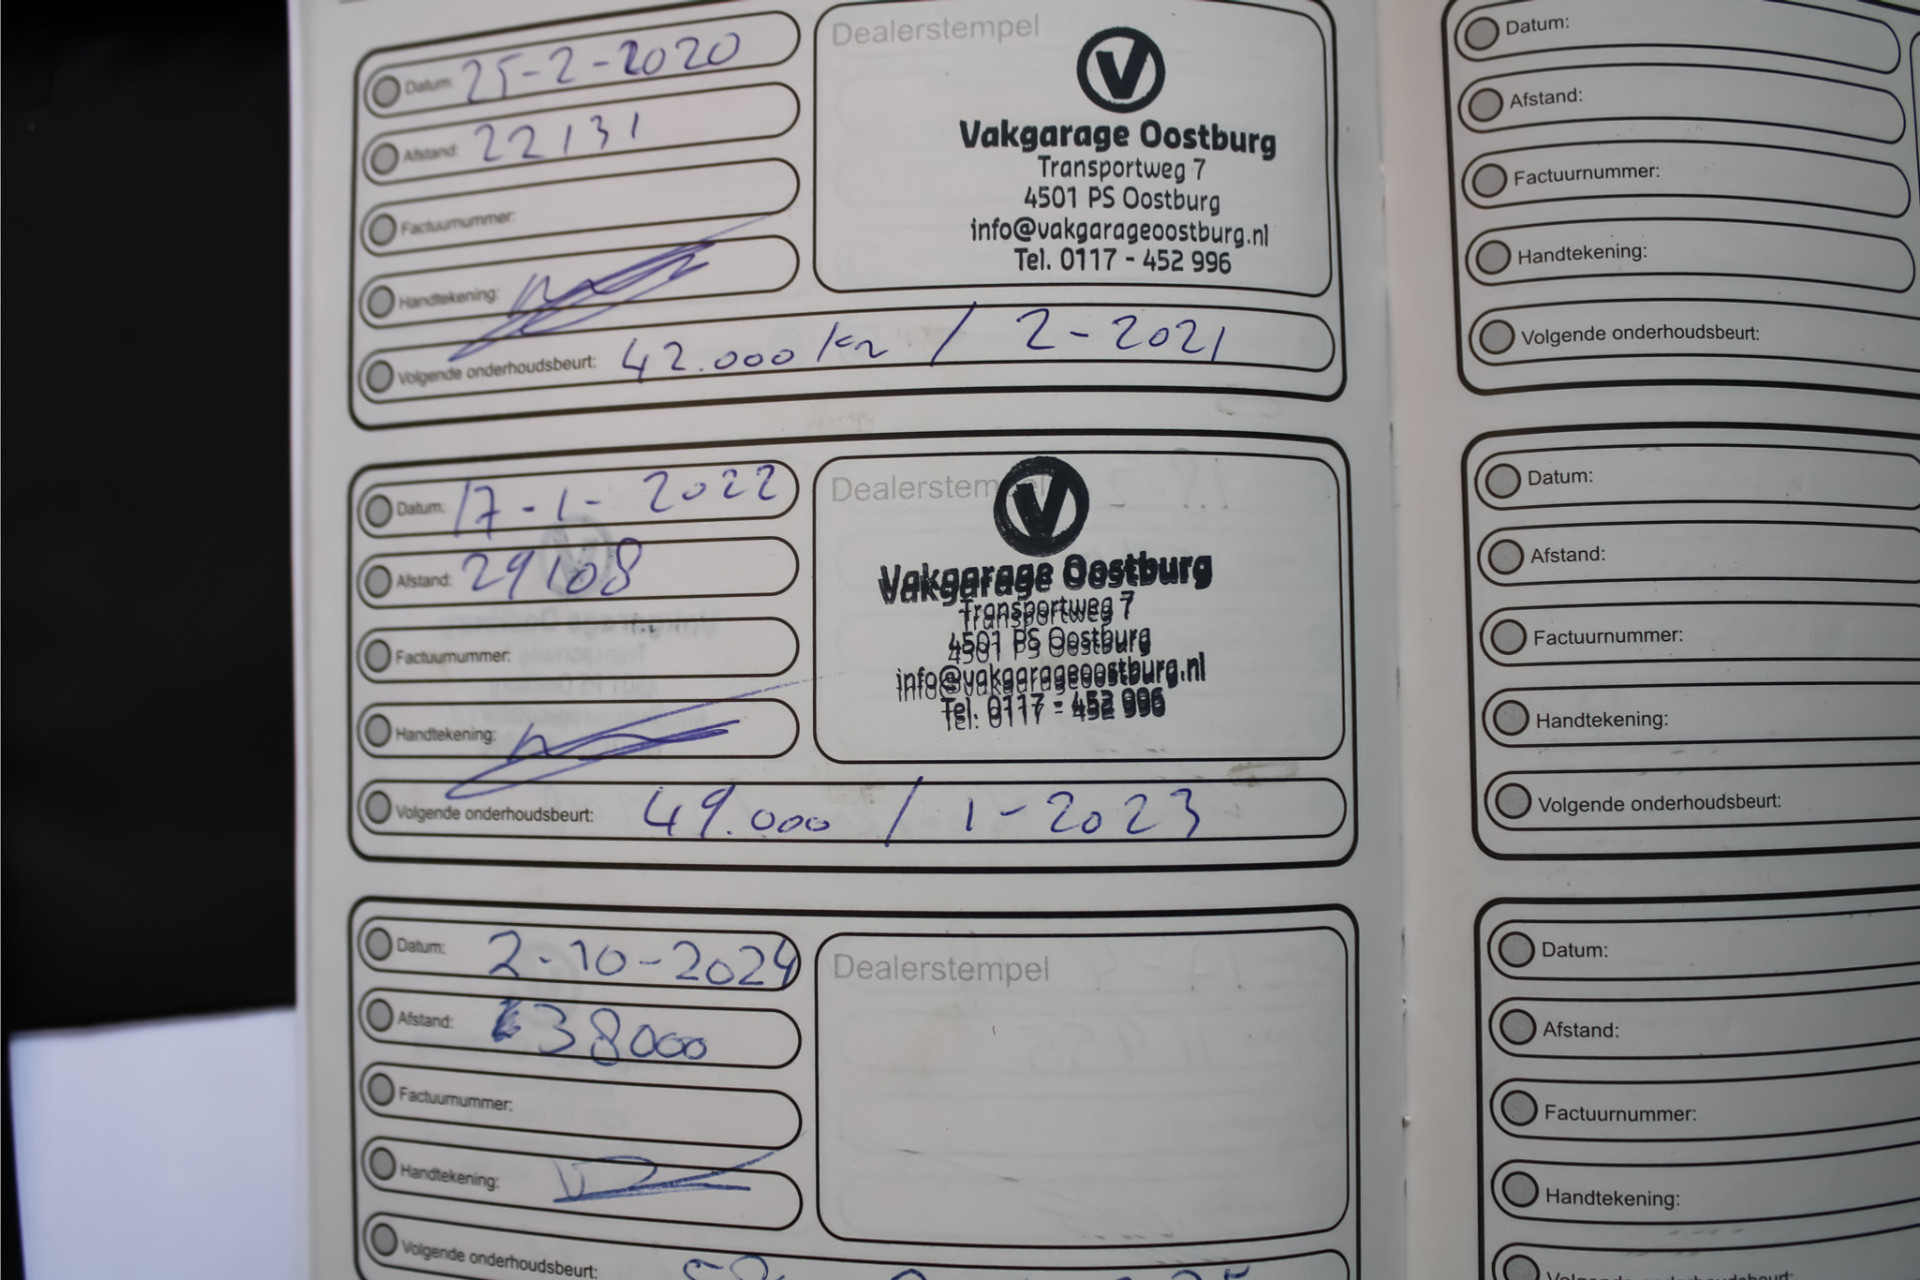 Datum: 25-2-2020
Afstand: 22131
Factuurnummer:
Handtekening:
Volgende onderhoudsbeurt: 42.000 km / 2-2021
Dealerstempel
V
Vakgarage Oostburg
Transportweg 7
4501 PS Oostburg
info@vakgarageoostburg.nl
Tel. 0117 - 452 996
Datum: 17-1-2022
Afstand: 29108
Factuurnummer:
Handtekening:
Volgende onderhoudsbeurt: 49.000 / 1-2023
Dealerstempel
V
Vakgarage Oostburg
Transportweg 7
4501 PS Oostburg
info@vakgarageoostburg.nl
Tel. 0117 - 452 996
Datum: 2-10-2024
Afstand: 38000
Factuurnummer:
Handtekening:
Volgende onderhoudsbeurt:
Dealerstempel
Datum:
Afstand:
Factuurnummer:
Handtekening:
Volgende onderhoudsbeurt:
Datum:
Afstand:
Factuurnummer:
Handtekening:
Volgende onderhoudsbeurt:
Datum:
Afstand:
Factuurnummer:
Handtekening:
Volgende onderhoudsbeurt: